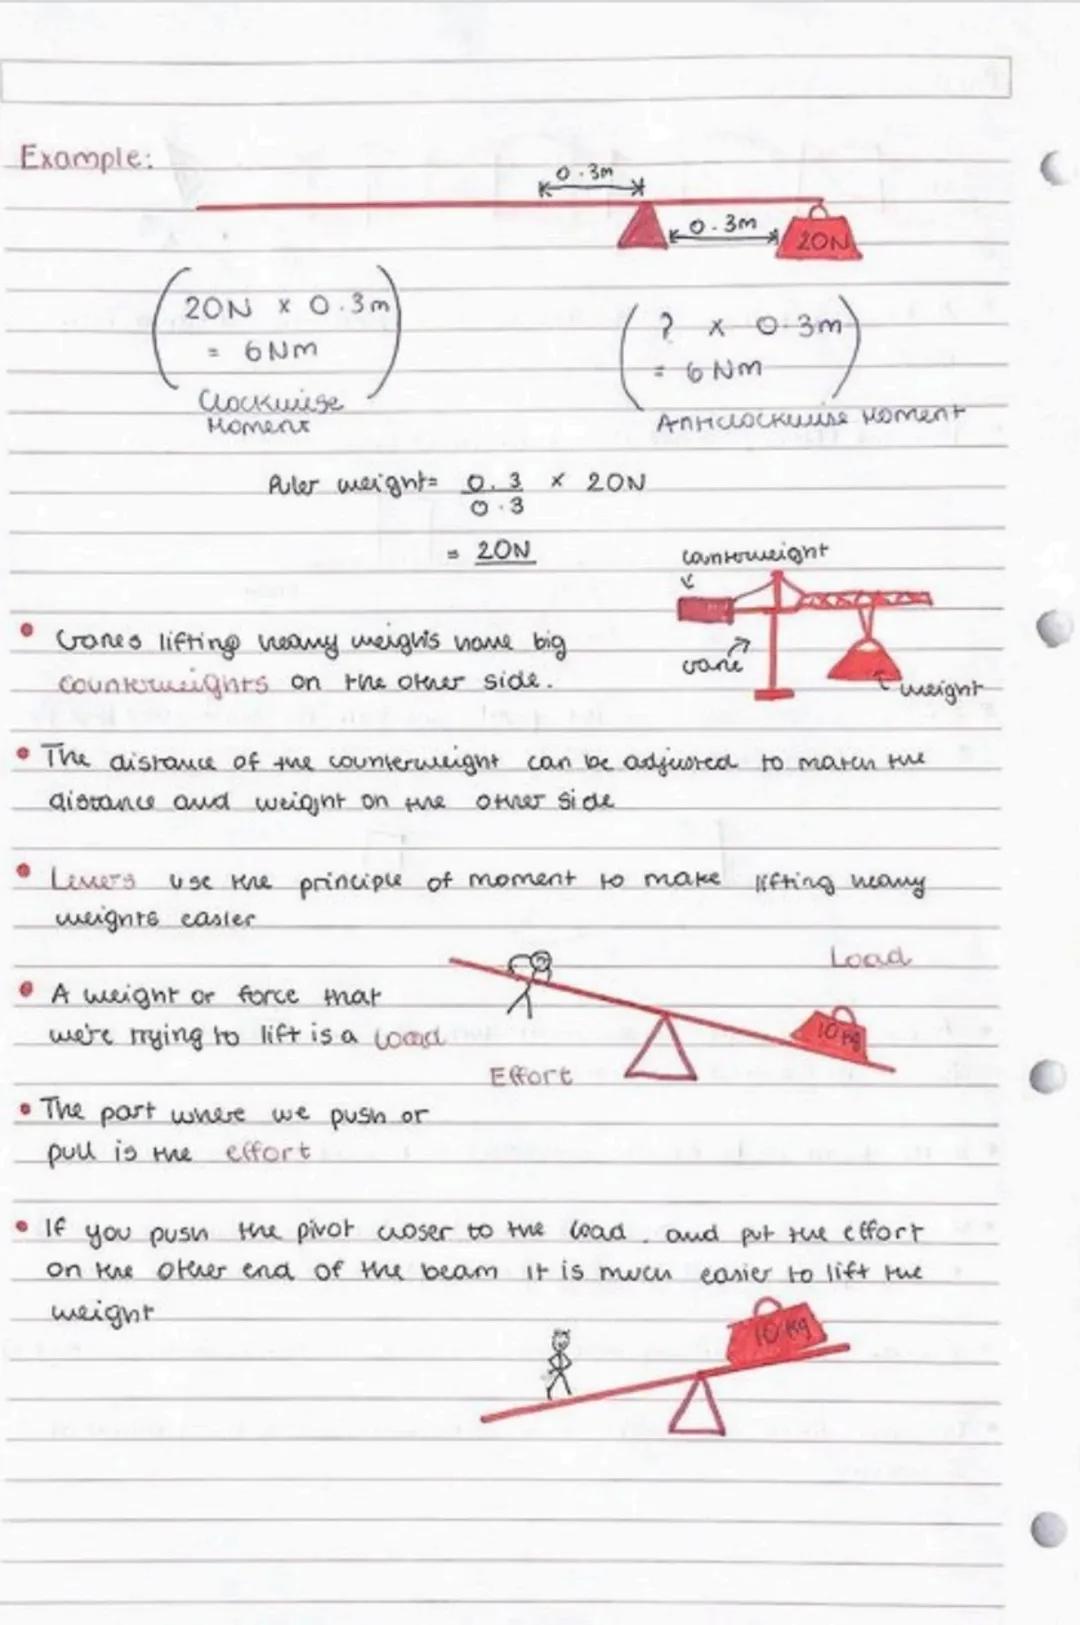 Example:
0.3m
0.3m
20N
20N x 0.3m
= 6Nm
Clockwise
Moment
? x 0.3m
= 6 Nm
Anticlockwise Moment
Ruler weight= 0.3 x 20N
0.3
= 20N
counterweight
crane
weight
• Cranes lifting heavy weights have big
counterweights on the other side.
• The distance of the counterweight can be adjusted to match the
distance and weight on the other side
• Levers use the principle of moment to make lifting heavy
weights easier
Load
• A weight or force that
we're trying to lift is a load
10 kg
Effort
• The part where we push or
pull is the effort
• If you push the pivot closer to the load, and put the effort
on the other end of the beam it is much easier to lift the
weight
10 kg